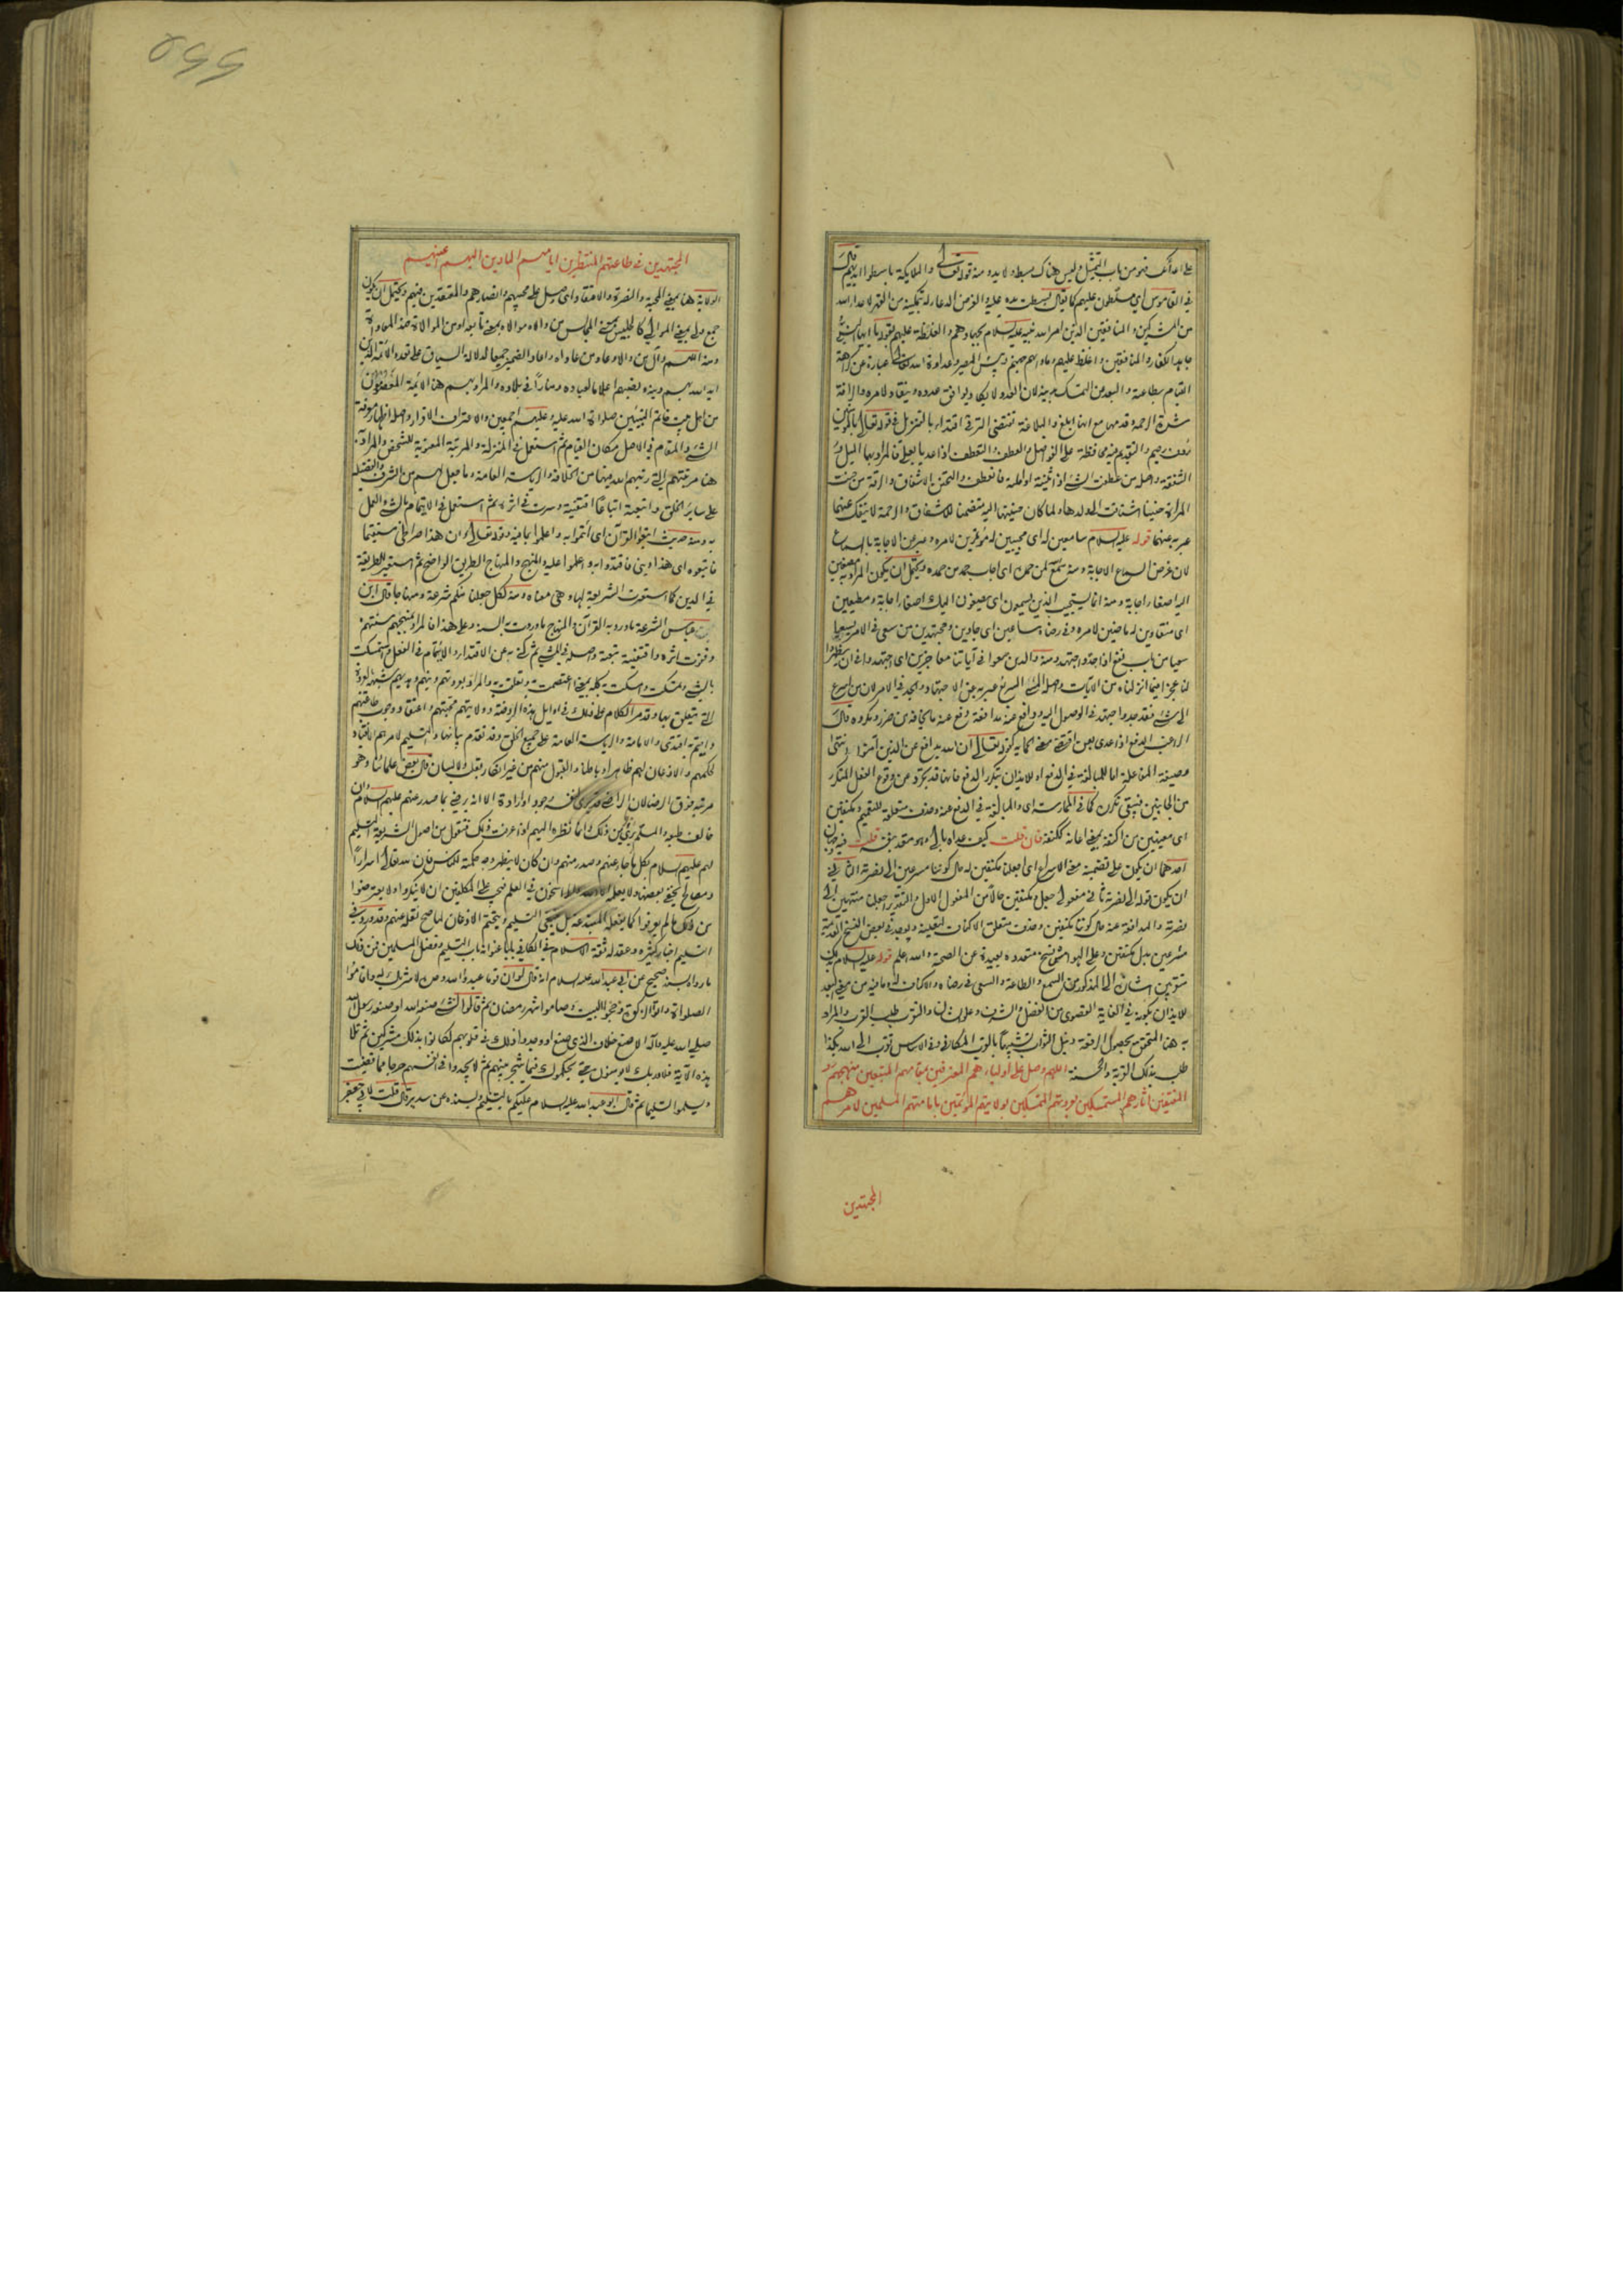 على اعدائك فهو من باب التمثيل وليس هناك بسط ولا يد ومنه قوله تعالى والملايكة باسطوا ايديهم قال
في القاموس اي مسلطون عليهم كما يقال بسطت يده عليه والغرض الدعا له بتمكينه من القهر لاعداء الله
من المشركين والمنافقين الذين امر الله نبيه عليه السلام بجهادهم والغلظة عليهم بقوله يا ايها النبي
جاهد الكفار والمنافقين واغلظ عليهم وماواهم جهنم وبئس المصير وعداوة الله تعالى عبارة عن كراهة
القيام بطاعته والبعد من التمسك بدينه لان العدو لا يكاد يوافق عدوه وينقاد لامره والرافة
شدة الرحمة وقدمها مع انها ابلغ والبلاغة تقتضي الترقي اقتداء بالتنزيل في قوله تعالى بالمؤمنين
رؤف رحيم والتقديم فيه محافظة على الفواصل والعطف والتعطف اذا عديا بعلى فالمراد بهما الميل و
الشفقة واصله من عطفت الشئ اذا ثنيته او املته فانعطف والتحنن الاشفاق والرقة من حنت
المراة حنينا اشتاقت الى ولدها ولما كان حنينها اليه متضمنا للاشفاق والرحمة لا ينفك عنهما
عبر به عنهما قوله عليه السلام سامعين له اي مجيبين له مؤتمرين لامره وعبر عن الاجابة بالسماع
لان غرض السماع الاجابة ومنه سمع الله لمن حمده اي اجاب حمد من حمده ويحتمل ان يكون المراد به مصغين
اليه اصغاء اجابة ومنه انما يستجيب الذين يسمعون اي يصغون اليك اصغاء اجابة ومطيعين
اي منقادين له ماضين لامره وفي رضاه ساعين اي جادين ومجتهدين من سعى في الامر يسعى
سعيا من باب نفع اذا جد واجتهد ومنه والذين سعوا في آياتنا معاجزين اي اجتهدوا في ان يظهروا
لنا عجزا فيما انزلناه من الآيات واصله المشي السريع عبر به عن الاجتهاد والجد في الامر لان من اسرع
الى شئ فقد جد واجتهد في الوصول اليه ودافع عنه مدافعة دفع عنه ما يخافه من ضرر ومكروه قال
الراغب الدفع اذا عدي بعن اقتضى معنى الحماية كقوله تعالى ان الله يدافع عن الذين آمنوا انتهى
وصيغة المفاعلة اما للمبالغة في الدفع او للايذان بتكرر الدفع فانها قد تجرد عن وقوع الفعل المتكرر
من الجانبين فيبقى تكرره كما في الممارسة اي والمبالغة في الدفع عنه وحذف متعلقه للتعميم ومكنفين
اي معينين من اكنفه بمعنى اعانه ككنفه فان قلت كيف عداه بالى وهو متعد بنفسه قلت فيه وجهان
احدهما ان يكون على تضمينه معنى الاسراع اي اجعلنا مكنفين له حال كوننا مسرعين الى نصرته الثاني
ان يكون قوله الى نصرته ثاني مفعولي جعل ومكنفين حالا من المفعول الاول والتقدير اجعلنا منتهين الى
نصرته والمدافعة عنه حال كوننا مكنفين وحذف متعلق الاكناف لتعيينه ويوجد في بعض النسخ القديمة
مسرعين بدل مكنفين وعلى الهوامش نسخ متعدده بعيدة عن الصحة والله اعلم قوله عليه السلام بذلك
متقربين اشارة الى المذكور من السمع والطاعة والسعي في رضاه والاكناف له وما فيه من معنى البعد
للايذان بكونه في الغاية القصوى من الفضل والشرف وعلو الشان والتقرب طلب القرب والمراد
به هنا التحقق بحصول الرفعة ونيل الثواب تشبيها بالقرب المكاني وفي الاساس تقرب الى الله بكذا
طلب بذلك القربة والحسنة اللهم وصل على اوليائهم المعترفين بمقامهم المتبعين منهجهم و
المقتفين آثارهم المستمسكين بعروتهم المتمسكين بولايتهم المؤتمين بامامتهم المسلمين لامرهم
المجتهدين
المجتهدين في طاعتهم المنتظرين ايامهم المادين اليهم اعينهم
الولاية هنا بمعنى المحبة والنصرة والاعتقاد اي وصل على محبيهم وانصارهم والمعتقدين فيهم ويحتمل ان يكون
جمع ولي بمعنى الموالي كالجليس بمعنى المجالس من والاه موالاة بمعنى تابعه او من الموالاة ضد المعاداة
ومنه اللهم وال من والاه وعاد من عاداه راعاد الضمير جميعا لدلالة السياق على تعدد الائمة الذين
ايد الله بهم دينه ونصبهم اعلاما لعباده ومنارا في بلاده والمراد بهم هنا الائمة المعصومون
من اهل بيت خاتم النبيين صلوات الله عليه وعليهم اجمعين والاعتراف الاقرار واصله اظهار معرفة
الشئ والمقام في الاصل مكان القيام ثم استعمل في المنزلة والمرتبة المعنوية للشخص والمراد به
هنا مرتبتهم التي رتبهم الله فيها من الخلافة والرياسة العامة وما جعل لهم من الشرف والفضيلة
على ساير الخلق واتبعته اتباعا اقتفيته وسرت في اثره ثم استعمل في الايتمام بالشئ والعمل
به ومنه حديث اتبعوا القرآن اي ائتموا به واعملوا بما فيه وقوله تعالى وان هذا صراطي مستقيما
فاتبعوه اي هذا ديني فاقتدوا به واعملوا عليه والمنهج والمنهاج الطريق الواضح ثم استعير للطريقة
في الدين كما استعيرت الشريعة لها وهي معناه ومنه لكل جعلنا منكم شرعة ومنهاجا قال ابن
عباس الشرعة ما ورد به القرآن والمنهاج ما وردت به السنة وعلى هذا فالمراد بمنهجهم سنتهم
وقفوت اثره واقتفيته تبعته واصله في المشي ثم كني به عن الاقتداء والايتمام في الفعل واستمسكت
بالشئ وتمسكت وامسكت به كله بمعنى اعتصمت به وتعلقت به والمراد بعروتهم دينهم وهديهم شبه بالعروة
التي يتعلق بها وقد مر الكلام على ذلك في اوايل هذه الروضة وولايتهم محبتهم واعتقاد وجوب طاعتهم
وايتم به اقتدى والامامة والرياسة العامة على جميع الخلق وقد تقدم بيانها والتسليم لامرهم الانقياد
لحكمهم والاذعان لهم ظاهرا وباطنا والقبول منهم من غير انكار بقلب ولا لسان قال بعض علمائنا وهو
مرتبة فوق الرضا لان الراضي قد يرى لنفسه وجودا وارادة الا انه رضي بما صدر عنهم عليهم السلام وان
خالف طبعه والمسلم بري من ذلك وانما نظره اليهم اذا عرفت ذلك فنقول من اصول الشريعة التسليم
لهم عليهم السلام بكل ما جاء عنهم وصدر منهم وان كان لا يظهر وجه حكمته للناس فان لله تعالى اسرارا
ومصالح يخفى بعضها ولا يعلمه الا الله والراسخون في العلم فيجب على المكلفين ان لا ينكروا ولا يعترضوا
من ذلك ما لم يعرفوا كما يفعله المبتدعة بل ينبغي التسليم ويتحتم الاذعان لما صح نقله عنهم وقد ورد في
التسليم اخبار كثيرة وعقد له ثقة الاسلام في الكافي بابا عنوانه باب التسليم وفضل المسلمين فمن ذلك
ما رواه بسند صحيح عن ابي عبد الله عليه السلام انه قال لو ان قوما عبدوا الله وحده لا شريك له واقاموا
الصلوة واتوا الزكوة وحجوا البيت وصاموا شهر رمضان ثم قالوا لشئ صنعه الله او صنعه رسول الله
صلى الله عليه وآله الا صنع خلاف الذي صنع او وجدوا ذلك في قلوبهم لكانوا بذلك مشركين ثم تلا
هذه الآية فلا وربك لا يؤمنون حتى يحكموك فيما شجر بينهم ثم لا يجدوا في انفسهم حرجا مما قضيت
ويسلموا تسليما ثم قال ابو عبد الله عليه السلام عليكم بالتسليم وبسنده عن سدير قال قلت لابي جعفر